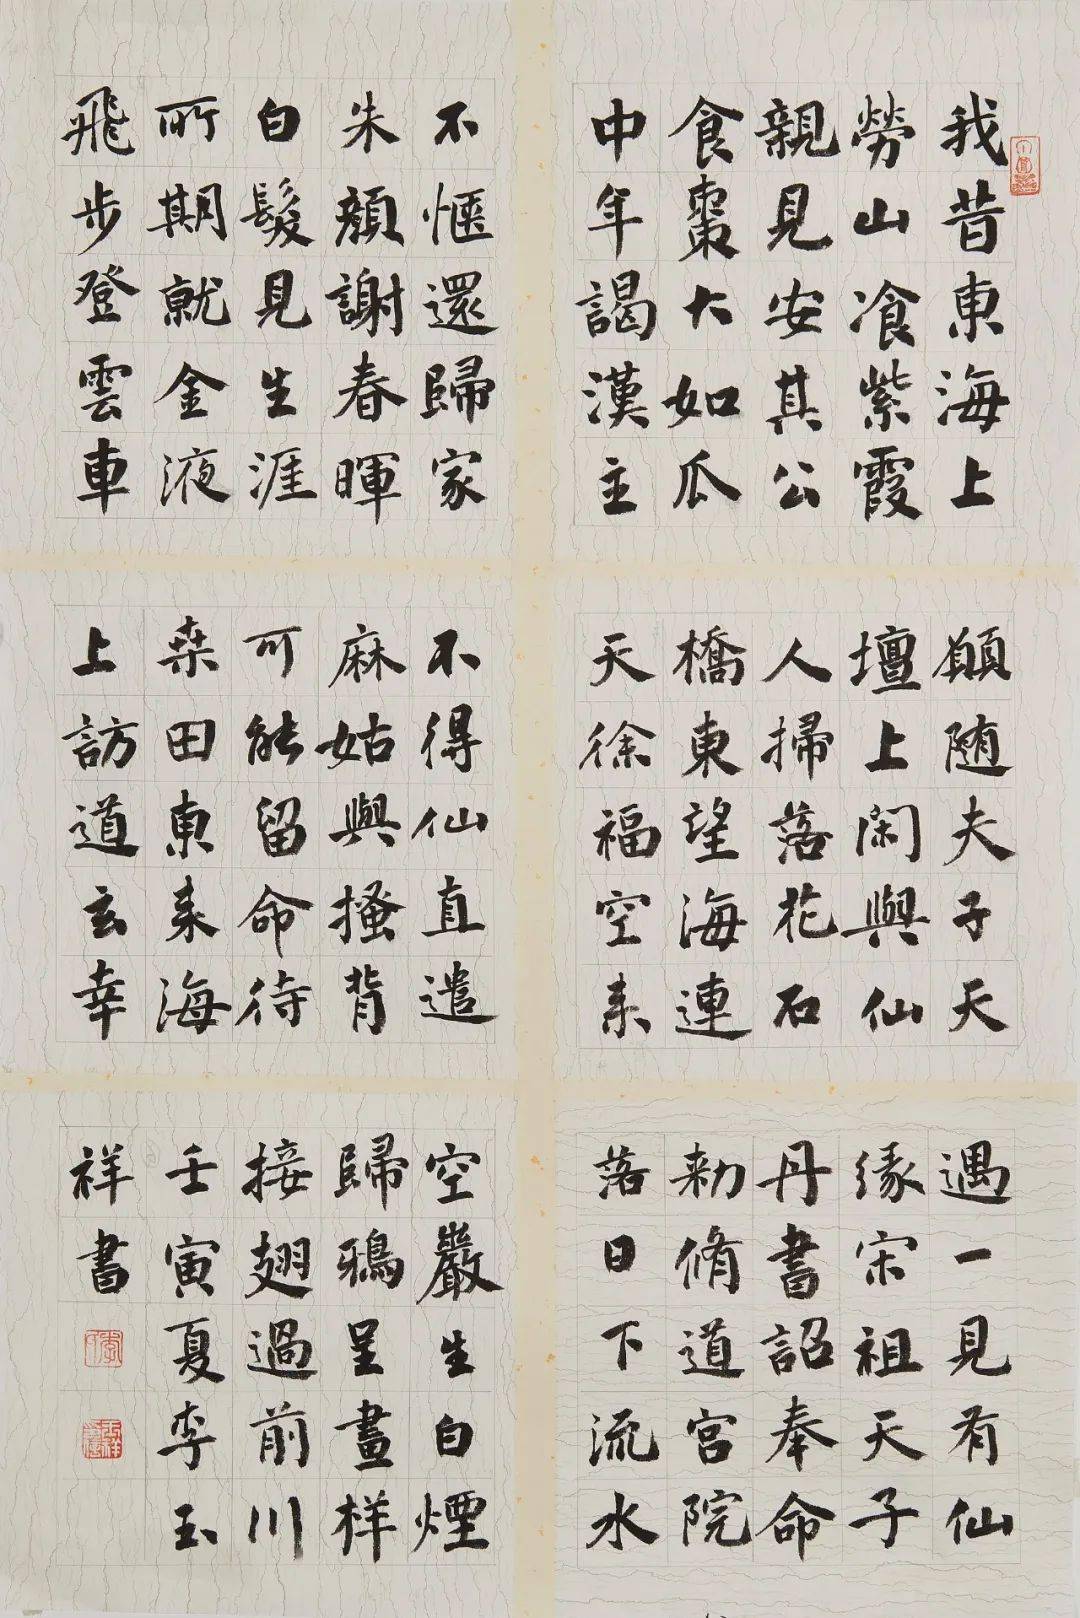 我昔東海上
勞山飡紫霞
親見安其公
食棗大如瓜
中年謁漢主
不愜還歸家
朱顏謝春暉
白髮見生涯
所期就金液
飛步登雲車
願随夫子天
壇上閑與仙
人掃落花石
橋東望海連
天徐福空来
不得仙直遣
麻姑與搔背
可能留命待
桒田東来海
上訪道玄幸
遇一見有仙
緣宋祖天子
丹書詔奉命
勅脩道宮院
落日下流水
空巖生白煙
歸鴉呈畫样
接翅過前川
壬寅夏李玉
祥書